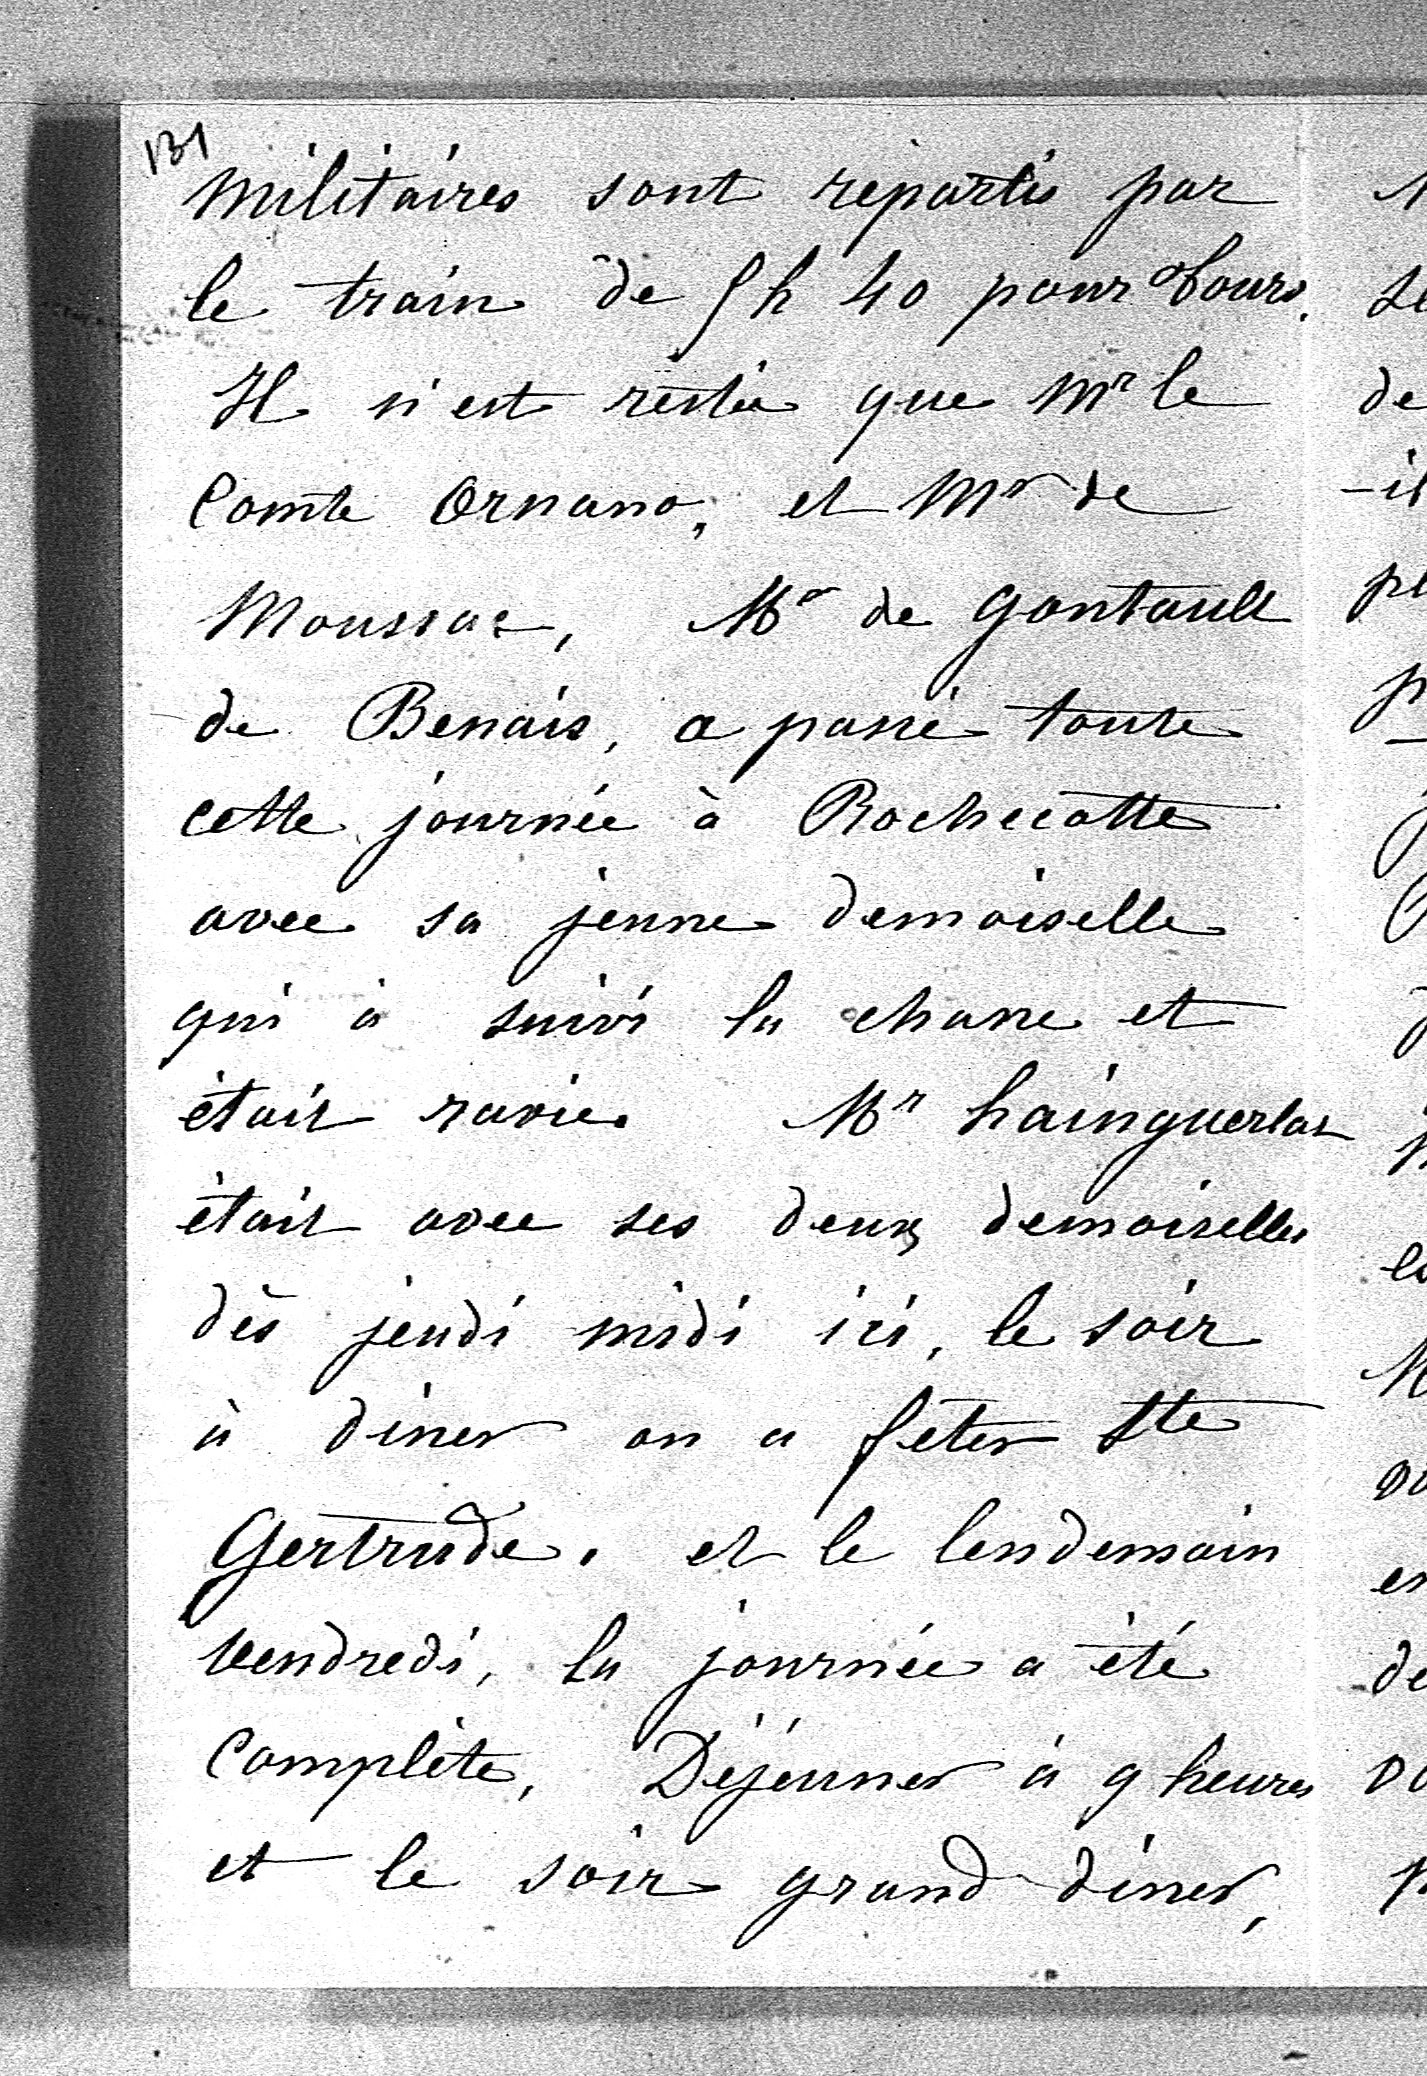 131
militaires sont repartis par
le train de 5h 40 pour Tours.
Il n'est restée que Mr le
Comte Ornano, et Mr de
Moussac, Mr de Gontault
de Benais, a passé toute
cette journée à Rochecotte
avec sa jeune demoiselle
qui à suivi la chasse et
était ravie. Mr hainguerlot
était avec ses deux demoiselles
dès jeudi midi ici, le soir
à diner on a fêter Ste
Gertrude. et le lendemain
vendredi, la journée a été
Complète, Déjeuner à 9 heures
et le soir grand diner,